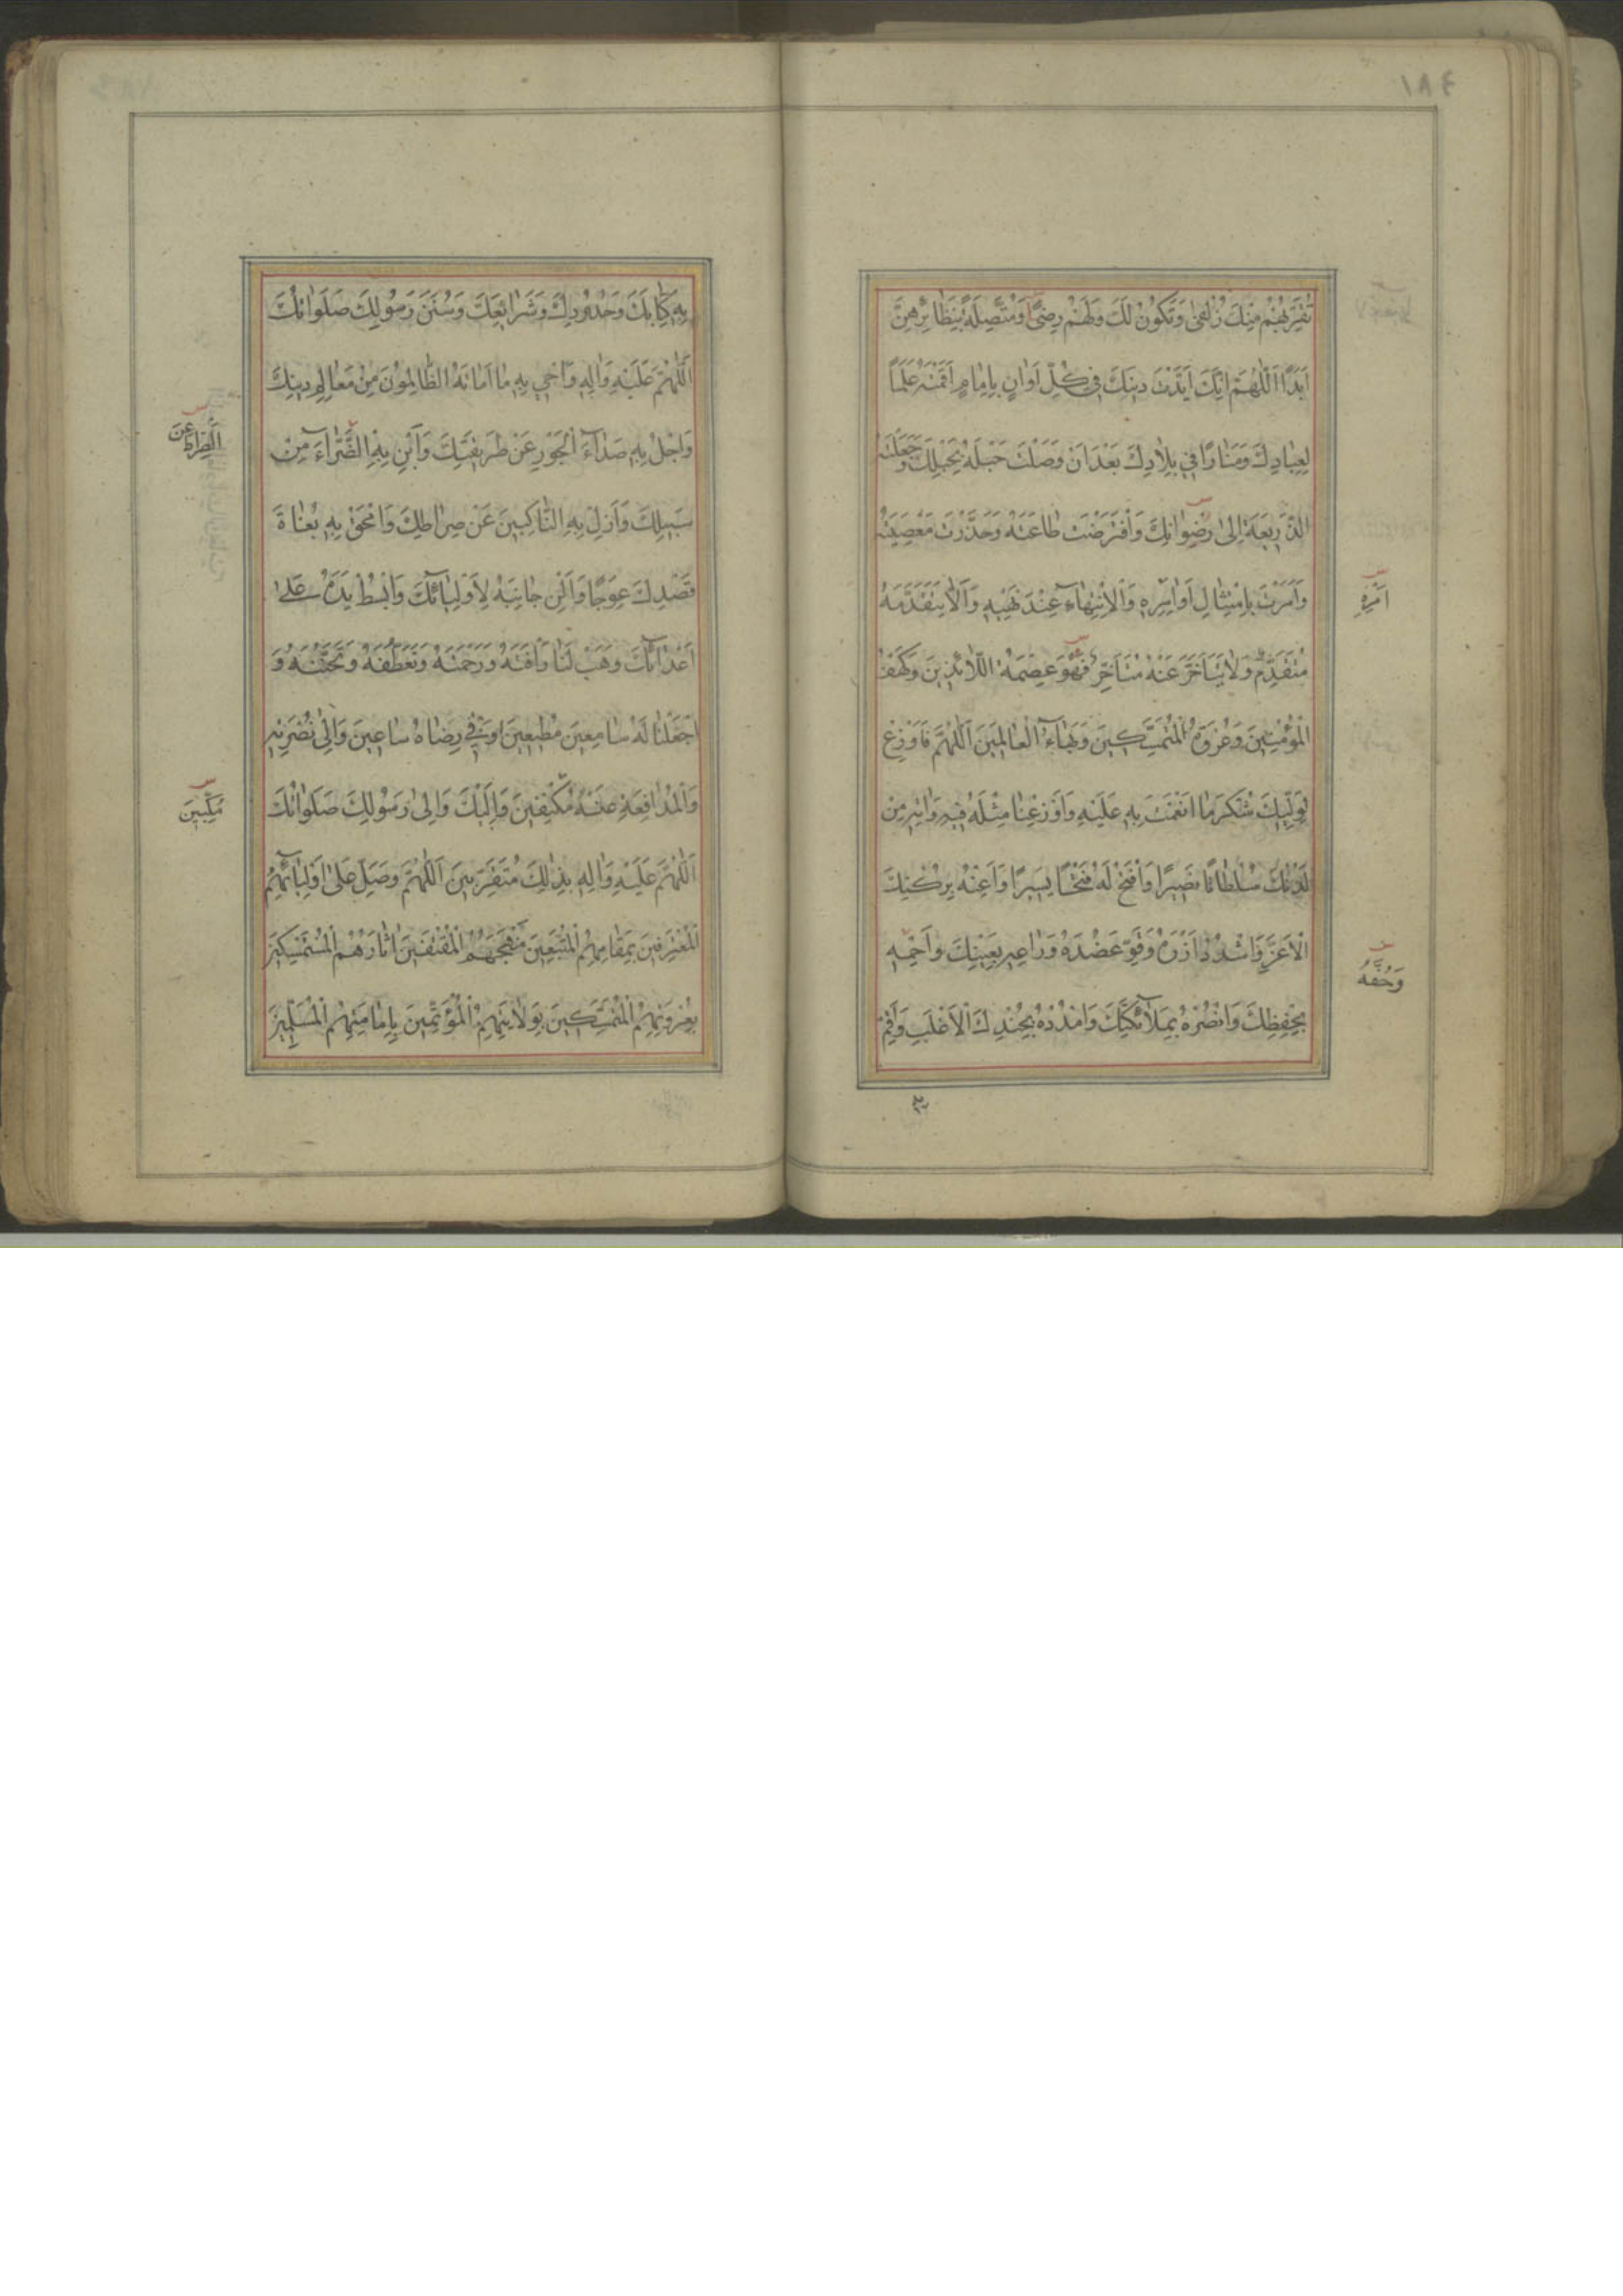 ١٨٤
تُقَرِّبُهُمْ مِنْكَ زُلْفىٰ وَتَكُونُ لَكَ وَلَهُمْ رِضىً وَمُتَّصِلَةً بِنَظَائِرِهِنَّ
اَبَدًا اَللّٰهُمَّ اِنَّكَ اَيَّدْتَ دِينَكَ فِي كُلِّ اَوَانٍ بِاِمَامٍ اَقَمْتَهُ عَلَمًا
لِعِبَادِكَ وَمَنَارًا فِي بِلَادِكَ بَعْدَ اَنْ وَصَلْتَ حَبْلَهُ بِحَبْلِكَ وَجَعَلْتَهُ
الذَّرِيعَةَ اِلىٰ رِضْوَانِكَ وَافْتَرَضْتَ طَاعَتَهُ وَحَذَّرْتَ مَعْصِيَتَهُ
وَاَمَرْتَ بِامْتِثَالِ اَوَامِرِهِ وَالْاِنْتِهَاءِ عِنْدَ نَهْيِهِ وَاَلَّا يَتَقَدَّمَهُ
اَمْرِهِ
مُتَقَدِّمٌ وَلَا يَتَاَخَّرَ عَنْهُ مُتَاَخِّرٌ فَهُوَ عِصْمَةُ اللَّائِذِينَ وَكَهْفُ
الْمُؤْمِنِينَ وَعُرْوَةُ الْمُتَمَسِّكِينَ وَبَهَاءُ الْعَالَمِينَ اَللّٰهُمَّ فَاَوْزِعْ
لِوَلِيِّكَ شُكْرَ مَا اَنْعَمْتَ بِهِ عَلَيْهِ وَاَوْزِعْنَا مِثْلَهُ فِيهِ وَاٰتِهِ مِنْ
لَدُنْكَ سُلْطَانًا نَصِيرًا وَافْتَحْ لَهُ فَتْحًا يَسِيرًا وَاَعِنْهُ بِرُكْنِكَ
الْاَعَزِّ وَاشْدُدْ اَزْرَهُ وَقَوِّ عَضُدَهُ وَرَاعِهِ بِعَيْنِكَ وَاحْمِهِ
وَحُفَّهُ
بِحِفْظِكَ وَانْصُرْهُ بِمَلَائِكَتِكَ وَامْدُدْهُ بِجُنْدِكَ الْاَغْلَبِ وَاَقِمْ
بِهِ كِتَابَكَ وَحُدُودَكَ وَشَرَائِعَكَ وَسُنَنَ رَسُولِكَ صَلَوَاتُكَ
اَللّٰهُمَّ عَلَيْهِ وَاٰلِهِ وَاَحْيِ بِهِ مَا اَمَاتَهُ الظَّالِمُونَ مِنْ مَعَالِمِ دِينِكَ
وَاجْلُ بِهِ صَدَاءَ الْجَوْرِ عَنْ طَرِيقَتِكَ وَاَبِنْ بِهِ الضَّرَّاءَ مِنْ
الصِّرَاطِ عَنْ
سَبِيلِكَ وَاَزِلْ بِهِ النَّاكِبِينَ عَنْ صِرَاطِكَ وَامْحَقْ بِهِ بُغَاةَ
قَصْدِكَ عِوَجًا وَاَلِنْ جَانِبَهُ لِاَوْلِيَائِكَ وَابْسُطْ يَدَهُ عَلىٰ
اَعْدَائِكَ وَهَبْ لَنَا رَأْفَتَهُ وَرَحْمَتَهُ وَتَعَطُّفَهُ وَتَحَنُّنَهُ وَ
اجْعَلْنَا لَهُ سَامِعِينَ مُطِيعِينَ وَفِي رِضَاهُ سَاعِينَ وَاِلىٰ نُصْرَتِهِ
وَالْمُدَافَعَةِ عَنْهُ مُكْنِفِينَ وَاِلَيْكَ وَاِلىٰ رَسُولِكَ صَلَوَاتُكَ
اَللّٰهُمَّ عَلَيْهِ وَاٰلِهِ بِذٰلِكَ مُتَقَرِّبِينَ اَللّٰهُمَّ وَصَلِّ عَلىٰ اَوْلِيَائِهِمُ
الْمُعْتَرِفِينَ بِمَقَامِهِمُ الْمُتَّبِعِينَ مَنْهَجَهُمُ الْمُقْتَفِينَ اٰثَارَهُمُ الْمُسْتَمْسِكِينَ
بِعُرْوَتِهِمُ الْمُتَمَسِّكِينَ بِوِلَايَتِهِمُ الْمُؤْتَمِّينَ بِاِمَامَتِهِمُ الْمُسَلِّمِينَ